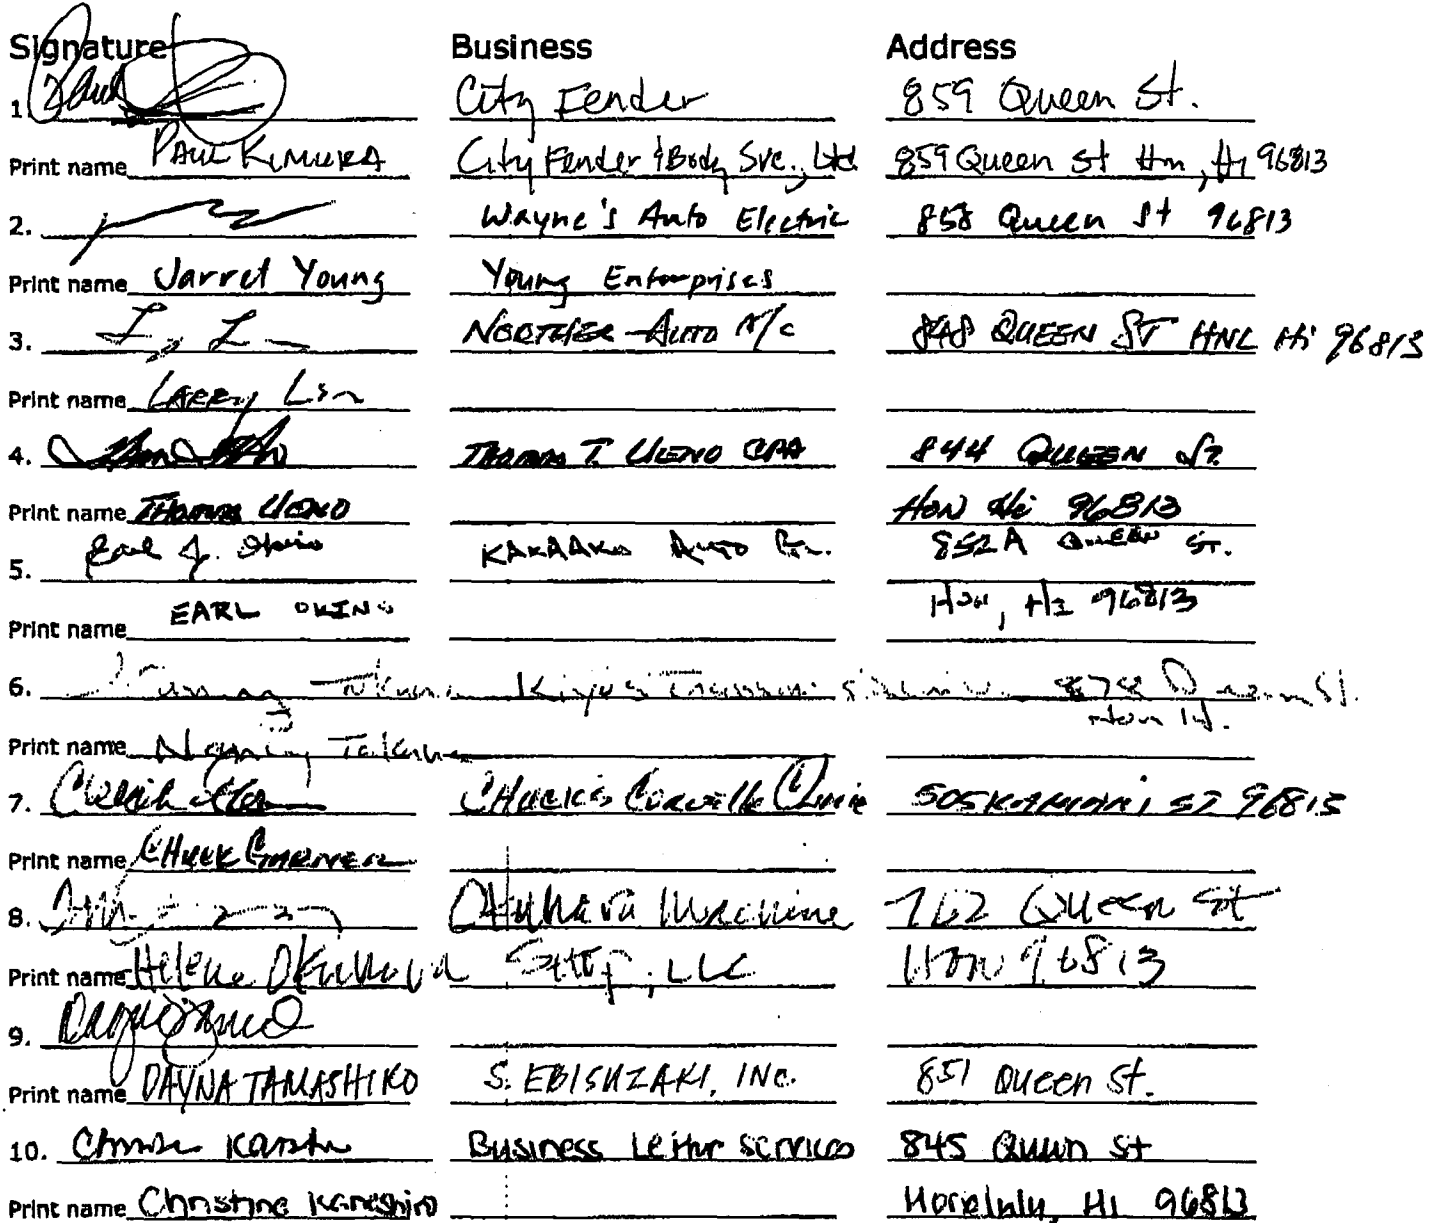 Signature Business Address
1. Paul City Fender 859 Queen St.
Print name PAUL KIMURA City Fender & Body Svc., Ltd 859 Queen St Hn, Hi 96813
2. Wayne's Auto Electric 858 Queen St 96813
Print name Jarrel Young Young Enterprises
3. L. L Auto A/C 848 QUEEN ST HNL Hi 96813
Print name LARRY Lin
4. THOMAS T. UENO CPA 844 QUEEN ST.
Print name THOMAS UENO HON Hi 96813
5. Earl J. Okino KAKAAKO Auto 852A QUEEN ST.
Print name EARL OKINO Hon, HI 96813
6. 878 Queen St.
Hon H.
Print name Nancy
7. CHUCK'S Corvette Clinic 505 KAMANI ST 96813
Print name CHUCK
8. Okuhara Machine 762 Queen St
Print name Helene Okuhara Shop, LLC HON 96813
9.
Print name DAYNA TAMASHIRO S. EBISUZAKI, INC. 851 Queen St.
10. Business Letter Services 845 Queen St
Print name Christine Kaneshiro Honolulu, HI 96813